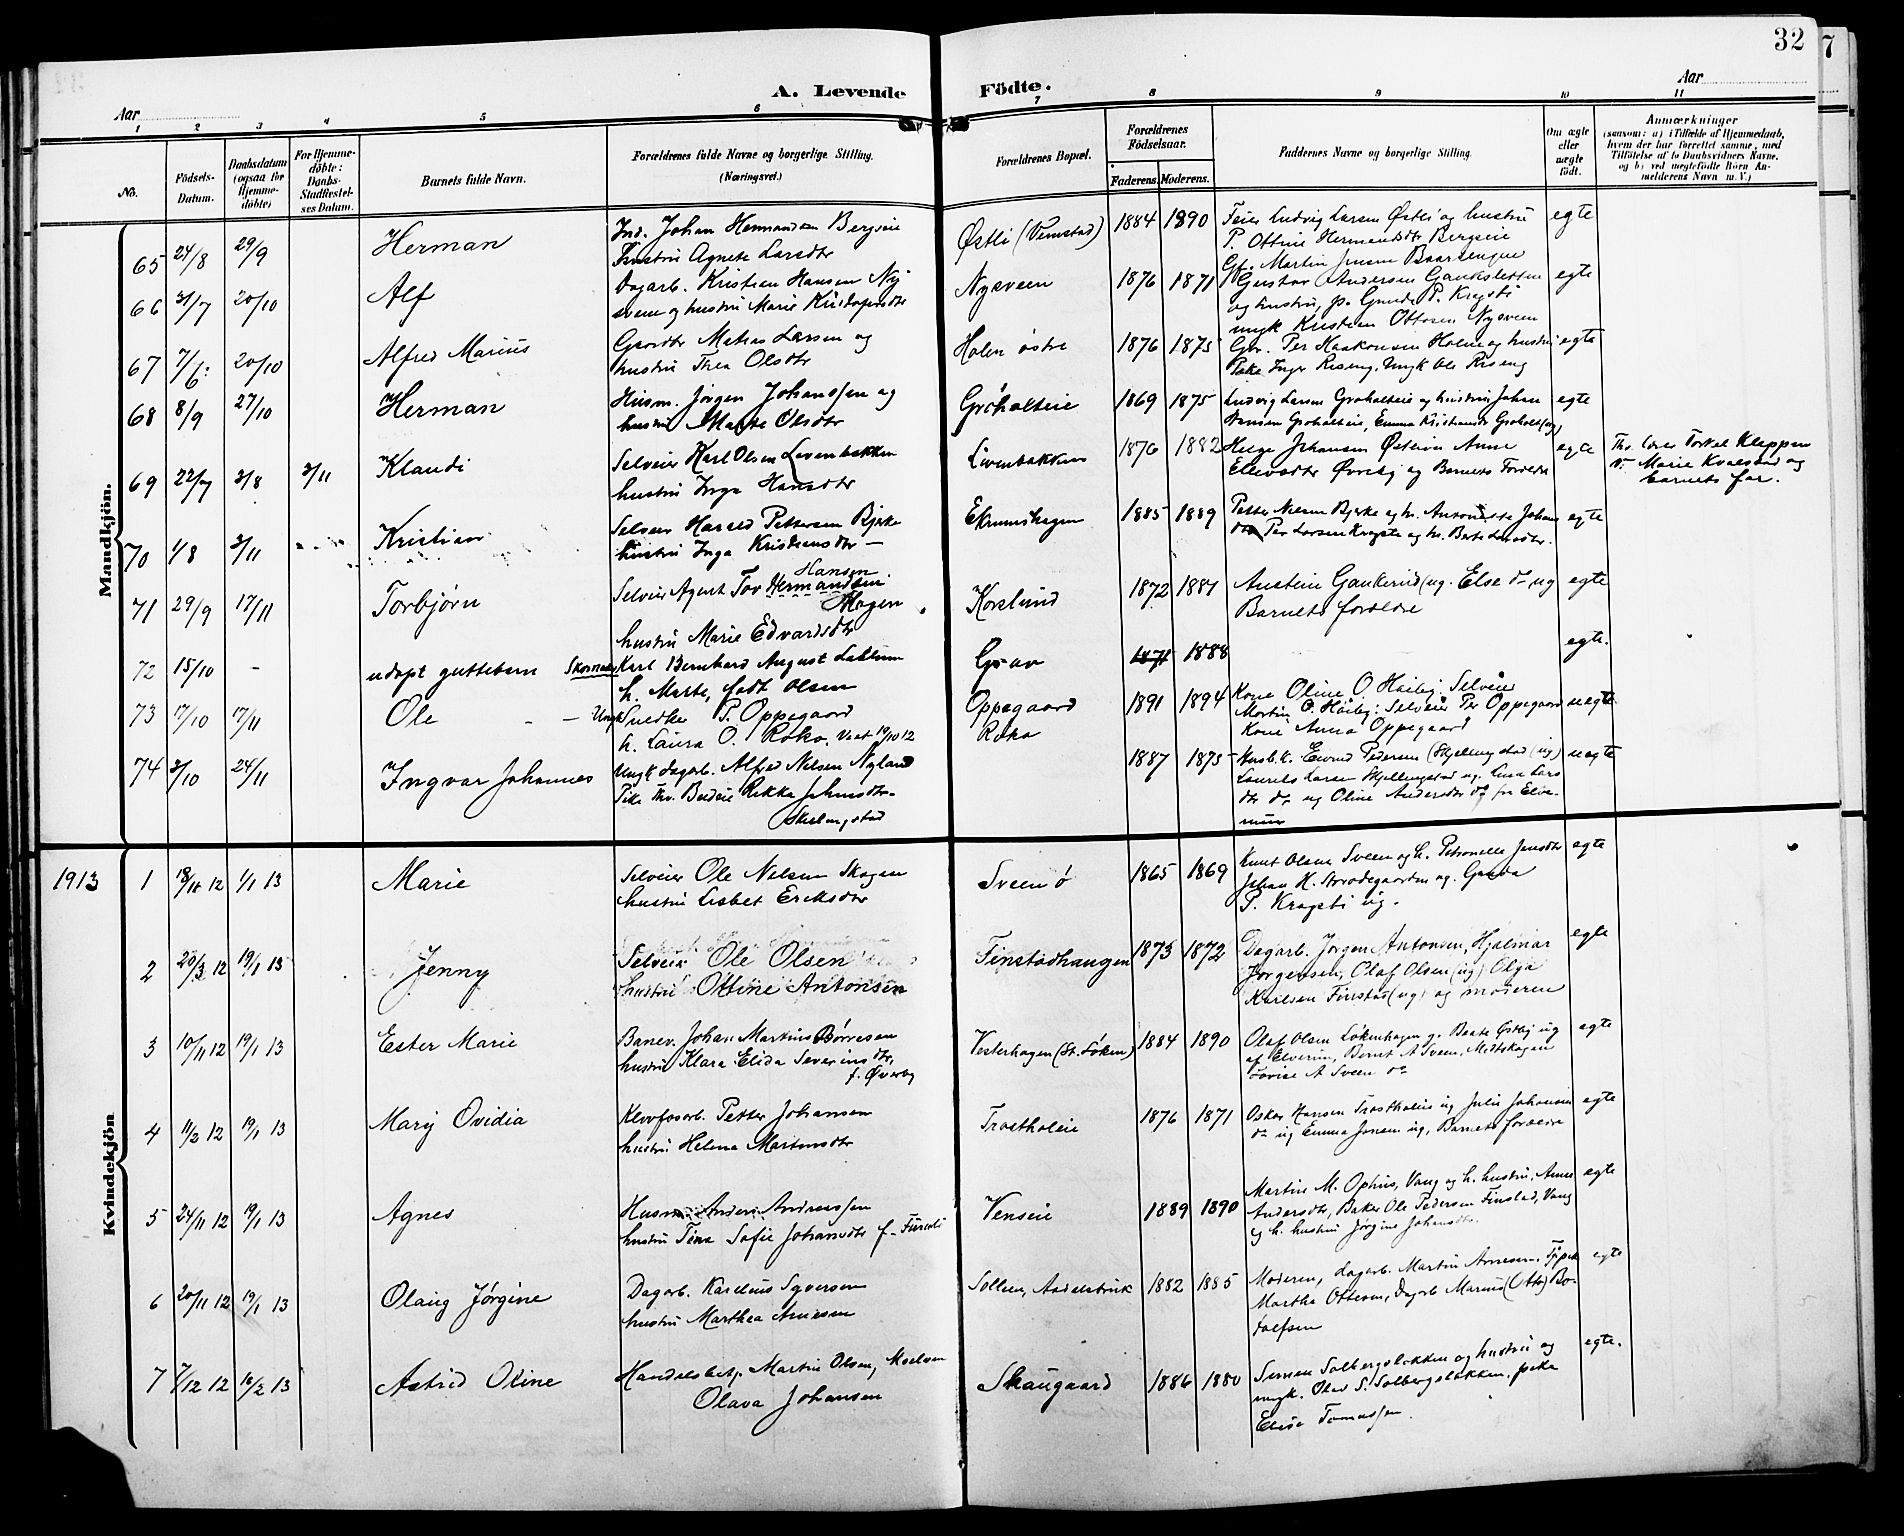 32
7
A. Levende Födte.
Aar
Aar
1 2 3 4 5 6 7 8 9 10 11
No.
Födsels-Datum.
Daabsdatum (ogsaa for Hjemmedöbte)
For Hjemmedöbte: Daabs-Stadfæstelses Datum.
Barnets fulde Navn.
Forældrenes fulde Navne og borgerlige Stilling. (Næringsvei.)
Forældrenes Bopæl.
Forældrenes Födselsaar.
Faderens. Moderens.
Faddernes Navne og borgerlige Stilling.
Om ægte eller uægte födt.
Anmærkninger
(saasom: a) i Tilfælde af Hjemmedaab, hvem der har forrettet samme, med Tilföielse af to Daabsvidners Navne, og b) ved uegtefödte Börn Anmelderens Navn m. V.)
Mandkjön.
65 24/8 29/9 Herman
Ind. Johan Hermandsen Bergseie
hustru Agnete Larsdtr
Østli (Vemstad) 1884 1890
Feier Ludvig Larsen Østli og hustru
P. Ottine Hermandsdtr Bergseie
egte
66 31/7 20/10 Alf
Dagarb. Kristian Hansen Ny
sveen og hustru Marie Kristofersdtr
Nysveen 1876 1871
Gustav Andersen Gaukesletten
og hustru, p. Gunda P. Kragsti
ungk Kristian Ottosen Nysveen
egte
67 7/6 20/10 Alfred Marius
Gaardbr Matias Larsen og
hustru Thea Olsdtr
Holen østre 1876 1875
Gbr. Per Haakonsen Holen og hustru
Pike Inger Riseng, Ungk Ole Riseng
egte
68 8/9 27/10 Herman
Husm. Jörgen Johanssen og
hustru Marte Olsdtr
Groholteie 1869 1875
Ludvig Larsen Groholteie og hustru Johan
Hansen Groholteie, Emma Kristiansdtr Groholt (ug)
egte
69 22/7 3/8 3/11 Klaudi
Selveier Karl Olsen Levenbakken
hustru Inga Hansdtr
Livenbakken 1876 1882
Helge Johansen Østeien Anne
Ellevsdtr Øvreby og Barnets Forældre
egte
Th. lærer Torkel Kleppen
V. Marie Kvalsund og
barnets far.
70 1/8 3/11 Kristian
Selveier Harald Pettersen Bjerke
hustru Inga Kristiansdtr —
Ekrumshagen 1885 1889
Petter Nielsen Bjerke og h. Antonette Johans
dtr Per Larsen Kragste og h. Berte Larsdtr.
egte
71 29/9 17/11 Torbjørn
Hansen
Selveier Agent Tov Hermandsen
Mogen
hustru Marie Edvardsdtr
Korslund 1872 1881
Austin Gaukerud (ug. Else do ug
Barnets forældre
egte
72 15/10 – udøpt guttebarn
Skomaker Karl Bernhard August Lallum
h. Marte, født Olsen
Grav 1871 1888
egte.
73 17/10 17/11 Ole
Ungk Snedker P. Oppegaard
h. Laura O. Roko. Viet 19/10 12
Oppegaard
Roko
1891 1894
Kone Oline O. Haiby: Selveier
Martin O. Haiby: Selveier Per Oppegaard
Kone Anna Oppegaard
uegte
74 3/10 24/11 Ingvar Johannes
Ungk dagarb. Alfred Nilsen Nyland
Pike Th. Budeie Rikka Johnsdtr
Skellingstad
1887 1875
Husb.k. Eivind Pedersen Skjellingstad (ug)
Laurits Larsen Skjellingstad ug. Lina Lars
dtr do ug Oline Andersdtr do fra Elve-
rum
uegte
Kvindekjön
1913
1 18/11 12 1/1 13 Marie
Selveier Ole Nelsen Skogen
hustru Lisbet Eriksdtr
Sveen ö 1865 1869
Knut Olsen Sveen og h. Petronelle Jensdtr
Johan H. Storødegaarden ug. Gunda
P. Kragsti ug.
egte
2 20/3 12 19/1 13 Jenny
Selveier Ole Olsen
hustru Ottine Antonsen
Finstadhaugen 1873 1872
Dagarb. Jørgen Antonsen, Hjalmar
Jørgensen, Olaf Olsen (ug) Olga
Karlsen Finstad (ug) og moderen
egte
3 10/11 12 19/1 13 Ester Marie
Banev. Johan Martinus Børresen
hustru Klara Elida Severinsdtr,
f. Øverby
Vesterhagen (St. Løken) 1884 1890
Olaf Olsen Løkenhagen g. Beate Østby ug
af Elverum, Bernt A Sveen, Midtskogen
Lovise A Sveen do
egte
4 11/2 12 19/1 13 Mary Ovidia
Klovfosarb. Petter Johansen
hustru Helena Martinsdtr
Trostholeie 1876 1871
Oskar Hansen Trostholeie ug Julie Johansen
do ug Emma Jonsen ug, Barnets forældre
egte
5 24/11 12 19/1 13 Agnes
Husm. Anders Andreassen
hustru Tina Sofie Johansdtr f. Fureoli
Venseie 1889 1890
Martin M. Ophus, Vang og h. hustru, Anne
Andersdtr, Baker Ole Pedersen Finstad, Vang
og h. hustru Jørgine Johansdtr.
egte
6 20/11 12 19/1 13 Olaug Jørgine
Dagarb. Karelius Syversen
hustru Marthea Arnesen
Sollien, Aadelsbruk 1882 1885
Moderen, dagarb. Martin Arnesen,
Martha Ottesen, Dagarb Marius (Otto) Bo-
dolfsen
egte
7 7/12 12 16/2 13 Astrid Oline
Handelsbetj. Martin Olsen, Moelven
Olava Johansen
Skaugaard 1886 1880
Simen Solbergsløkken og hustru og
ungk. Olav S. Solbergsløkken, pike
Elise Tomassen.
egte.